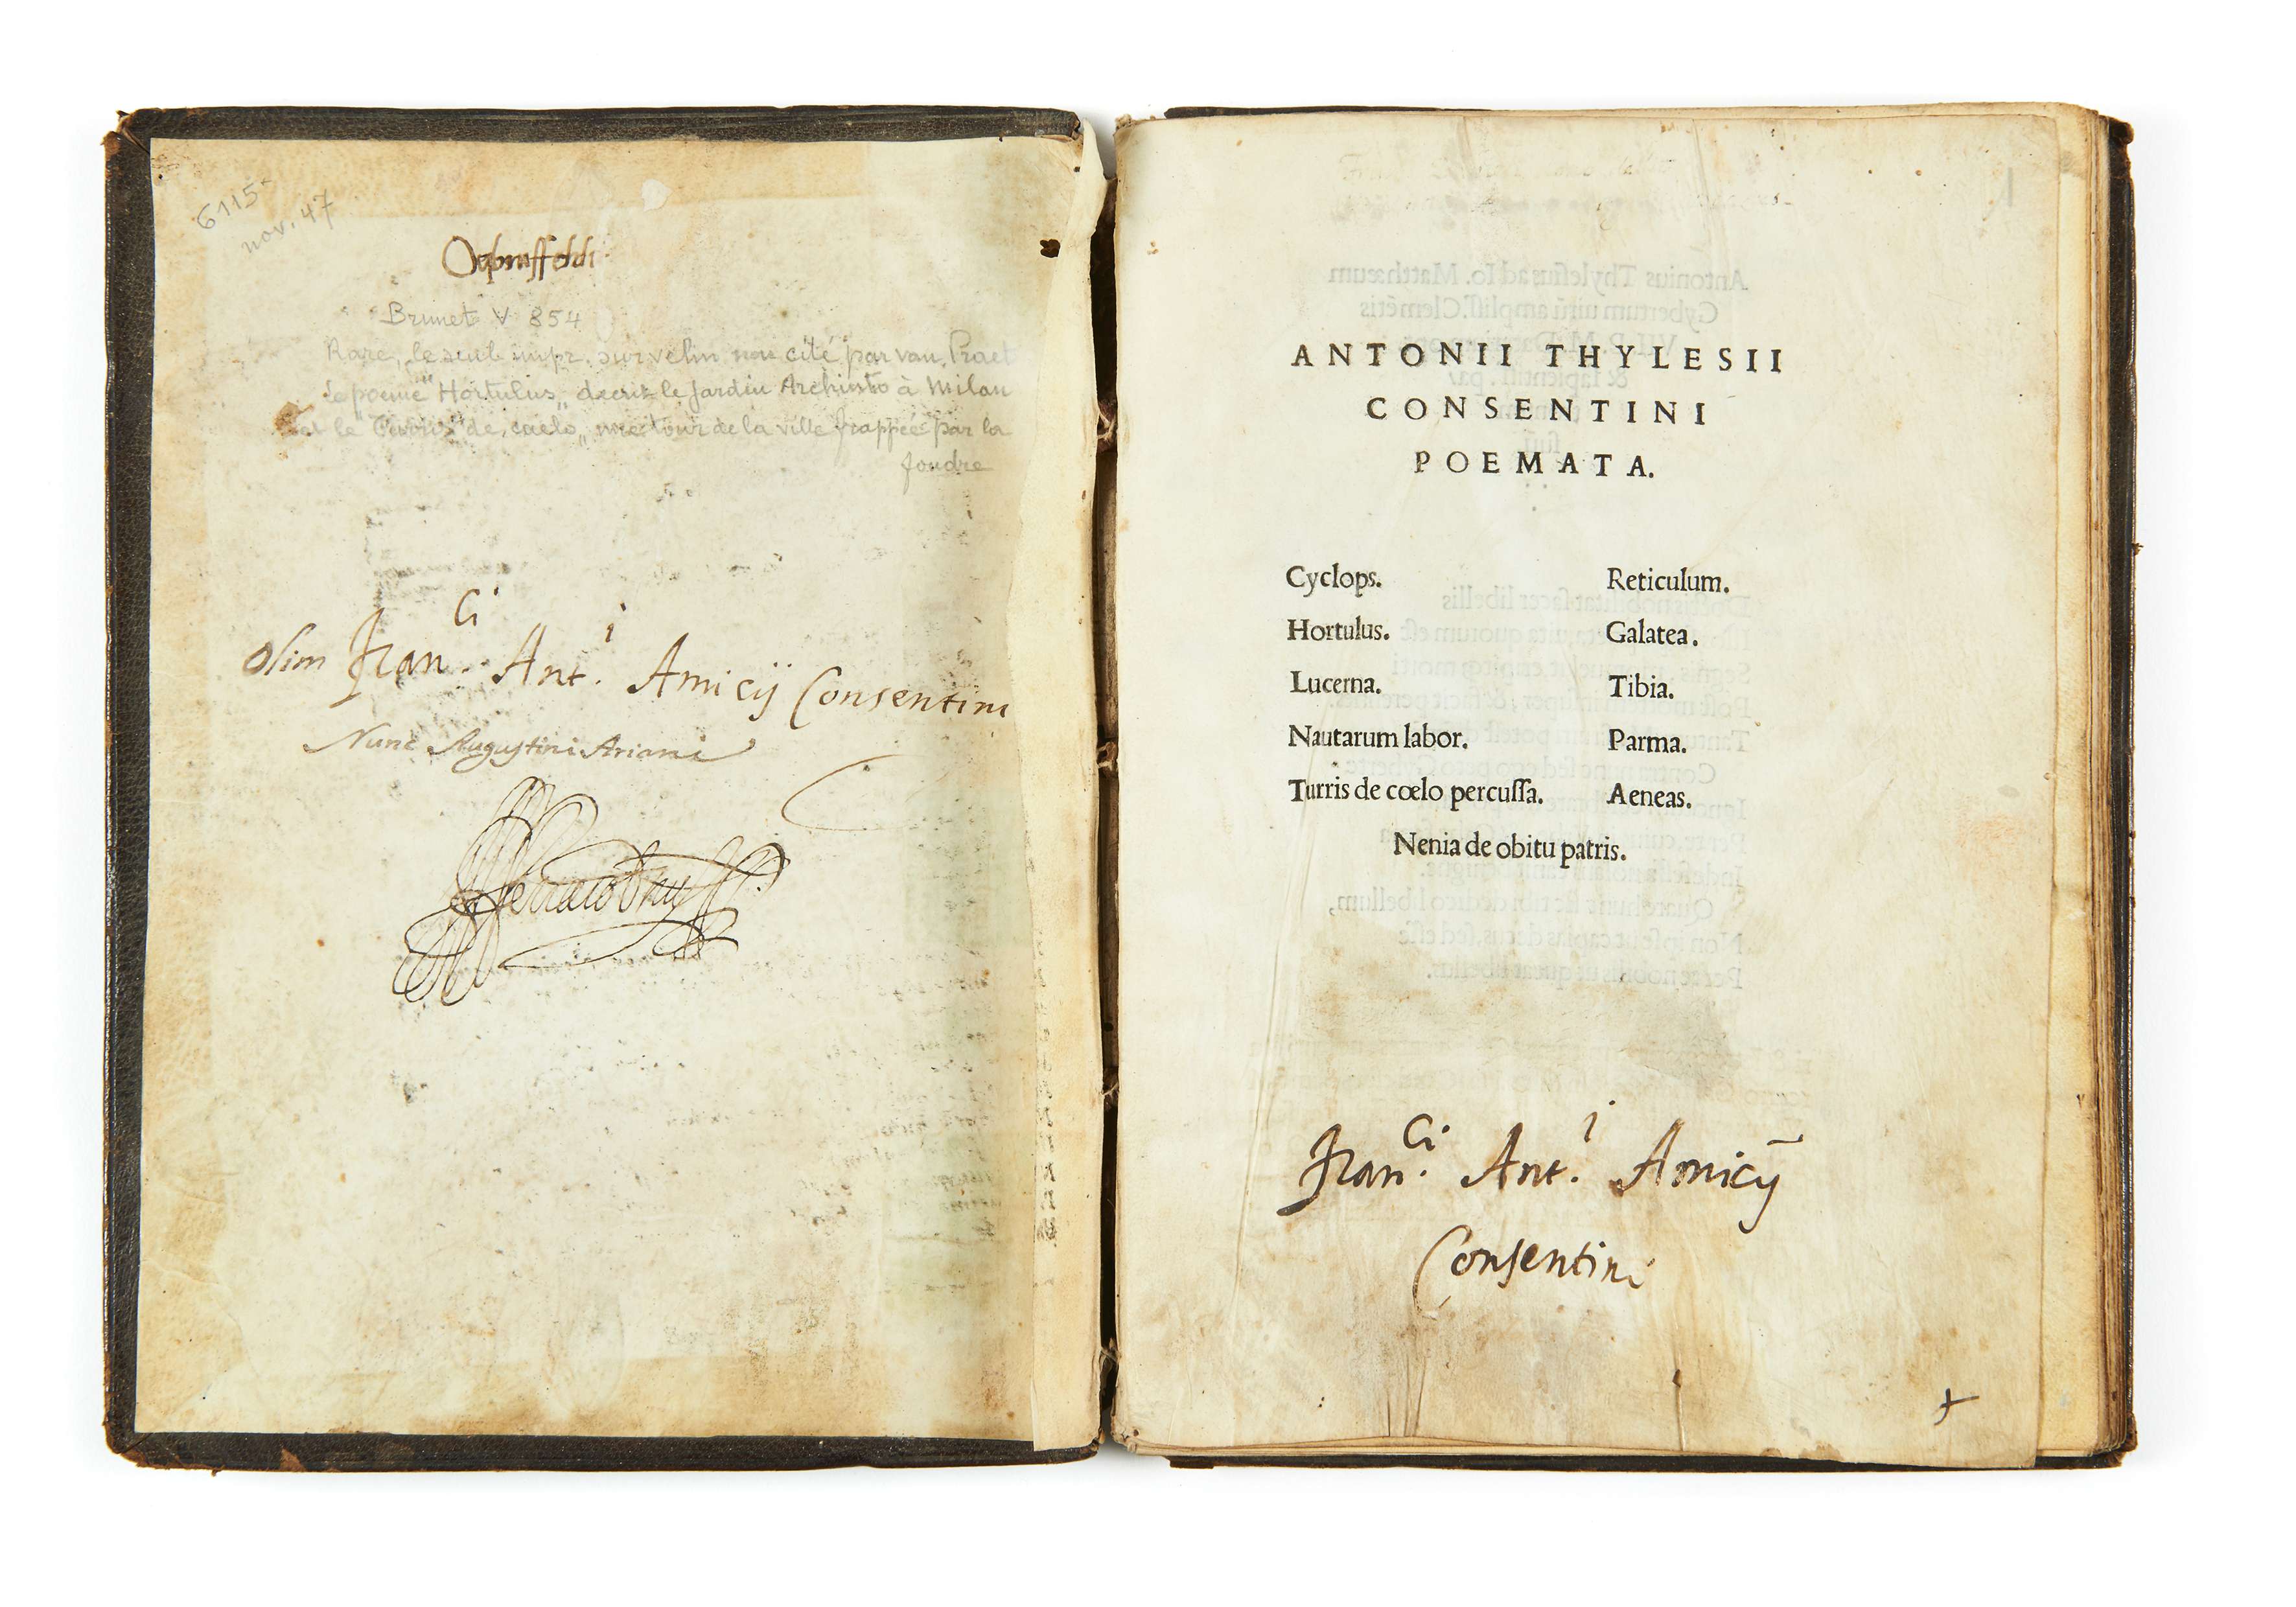 6115-
nov. 47
Brunet V 854
Rare, le seul impr. sur velin non cité par van Praet
Le poeme "Hortulus" decrit le jardin Archinto à Milan
et le "Turris de caelo" une tour de la ville frappée par la
foudre
Olim Fran.ci Ant.i Amicij Consentini
Nunc Augustini Ariani
ANTONII THYLESII
CONSENTINI
POEMATA.
Cyclops. Reticulum.
Hortulus. Galatea.
Lucerna. Tibia.
Nautarum labor. Parma.
Turris de cœlo percuſſa. Aeneas.
Nenia de obitu patris.
Fran.ci Ant.i Amicij
Consentini